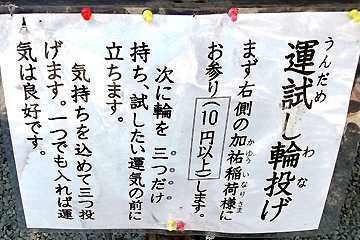 運試し輪投げ
うんだめ わな
まず右側の加祐稲荷様に
かゆう いなり さま
お参り(10円以上)します。
次に輪を 三つだけ
持ち、試したい運気の前に
立ちます。
気持ちを込めて三つ投
げます。一つでも入れば運
気は良好です。